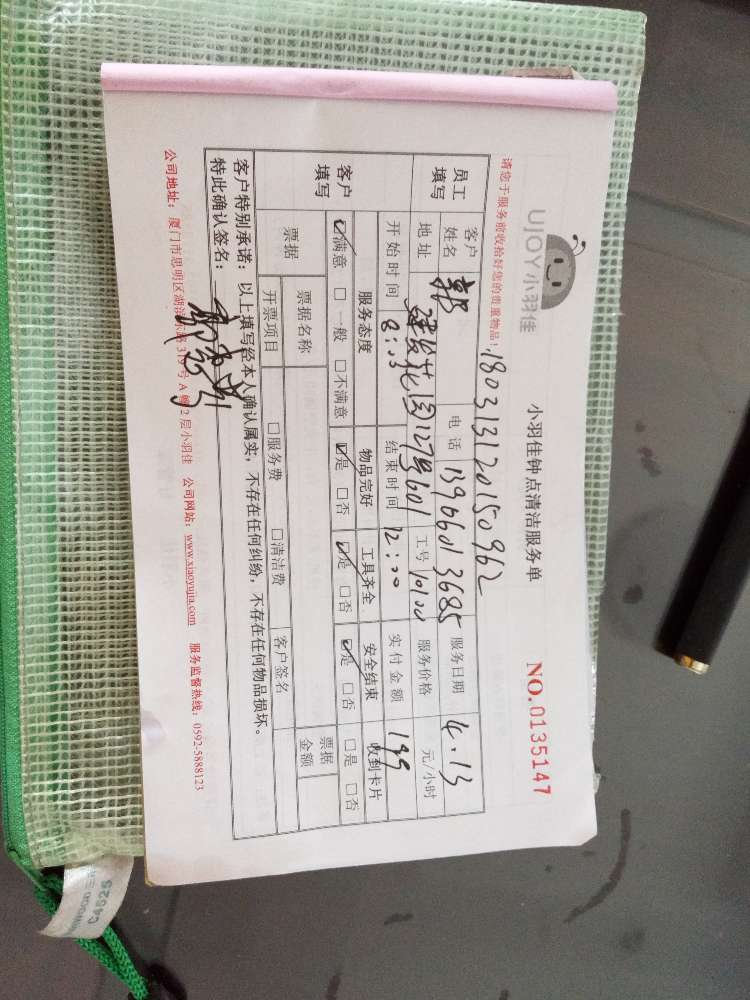 UJOY小羽佳
小羽佳钟点清洁服务单
NO.0135147
请您于服务前收拾好您的贵重物品!
180313120150962
员工填写 客户姓名 郭 电话 13966013685 服务日期 4.13
地址 建发花园127号601 工号 10100 服务价格 元/小时
开始时间 8:00 结束时间 12:00 实付金额 199
客户填写 服务态度 物品完好 工具齐全 安全结束 收到卡片
☑满意 □一般 □不满意 ☑是 □否 ☑是 □否 ☑是 □否 □是 □否
票据 票据名称 票据金额
开票项目 □服务费 □清洁费 客户签名
客户特别承诺:以上填写经本人确认属实,不存在任何纠纷,不存在任何物品损坏。
特此确认签名:
公司地址:厦门市思明区湖滨 A幢2层小羽佳 公司网站:www.xiaoyujia.com 服务监督热线:0592-5888123
C4625